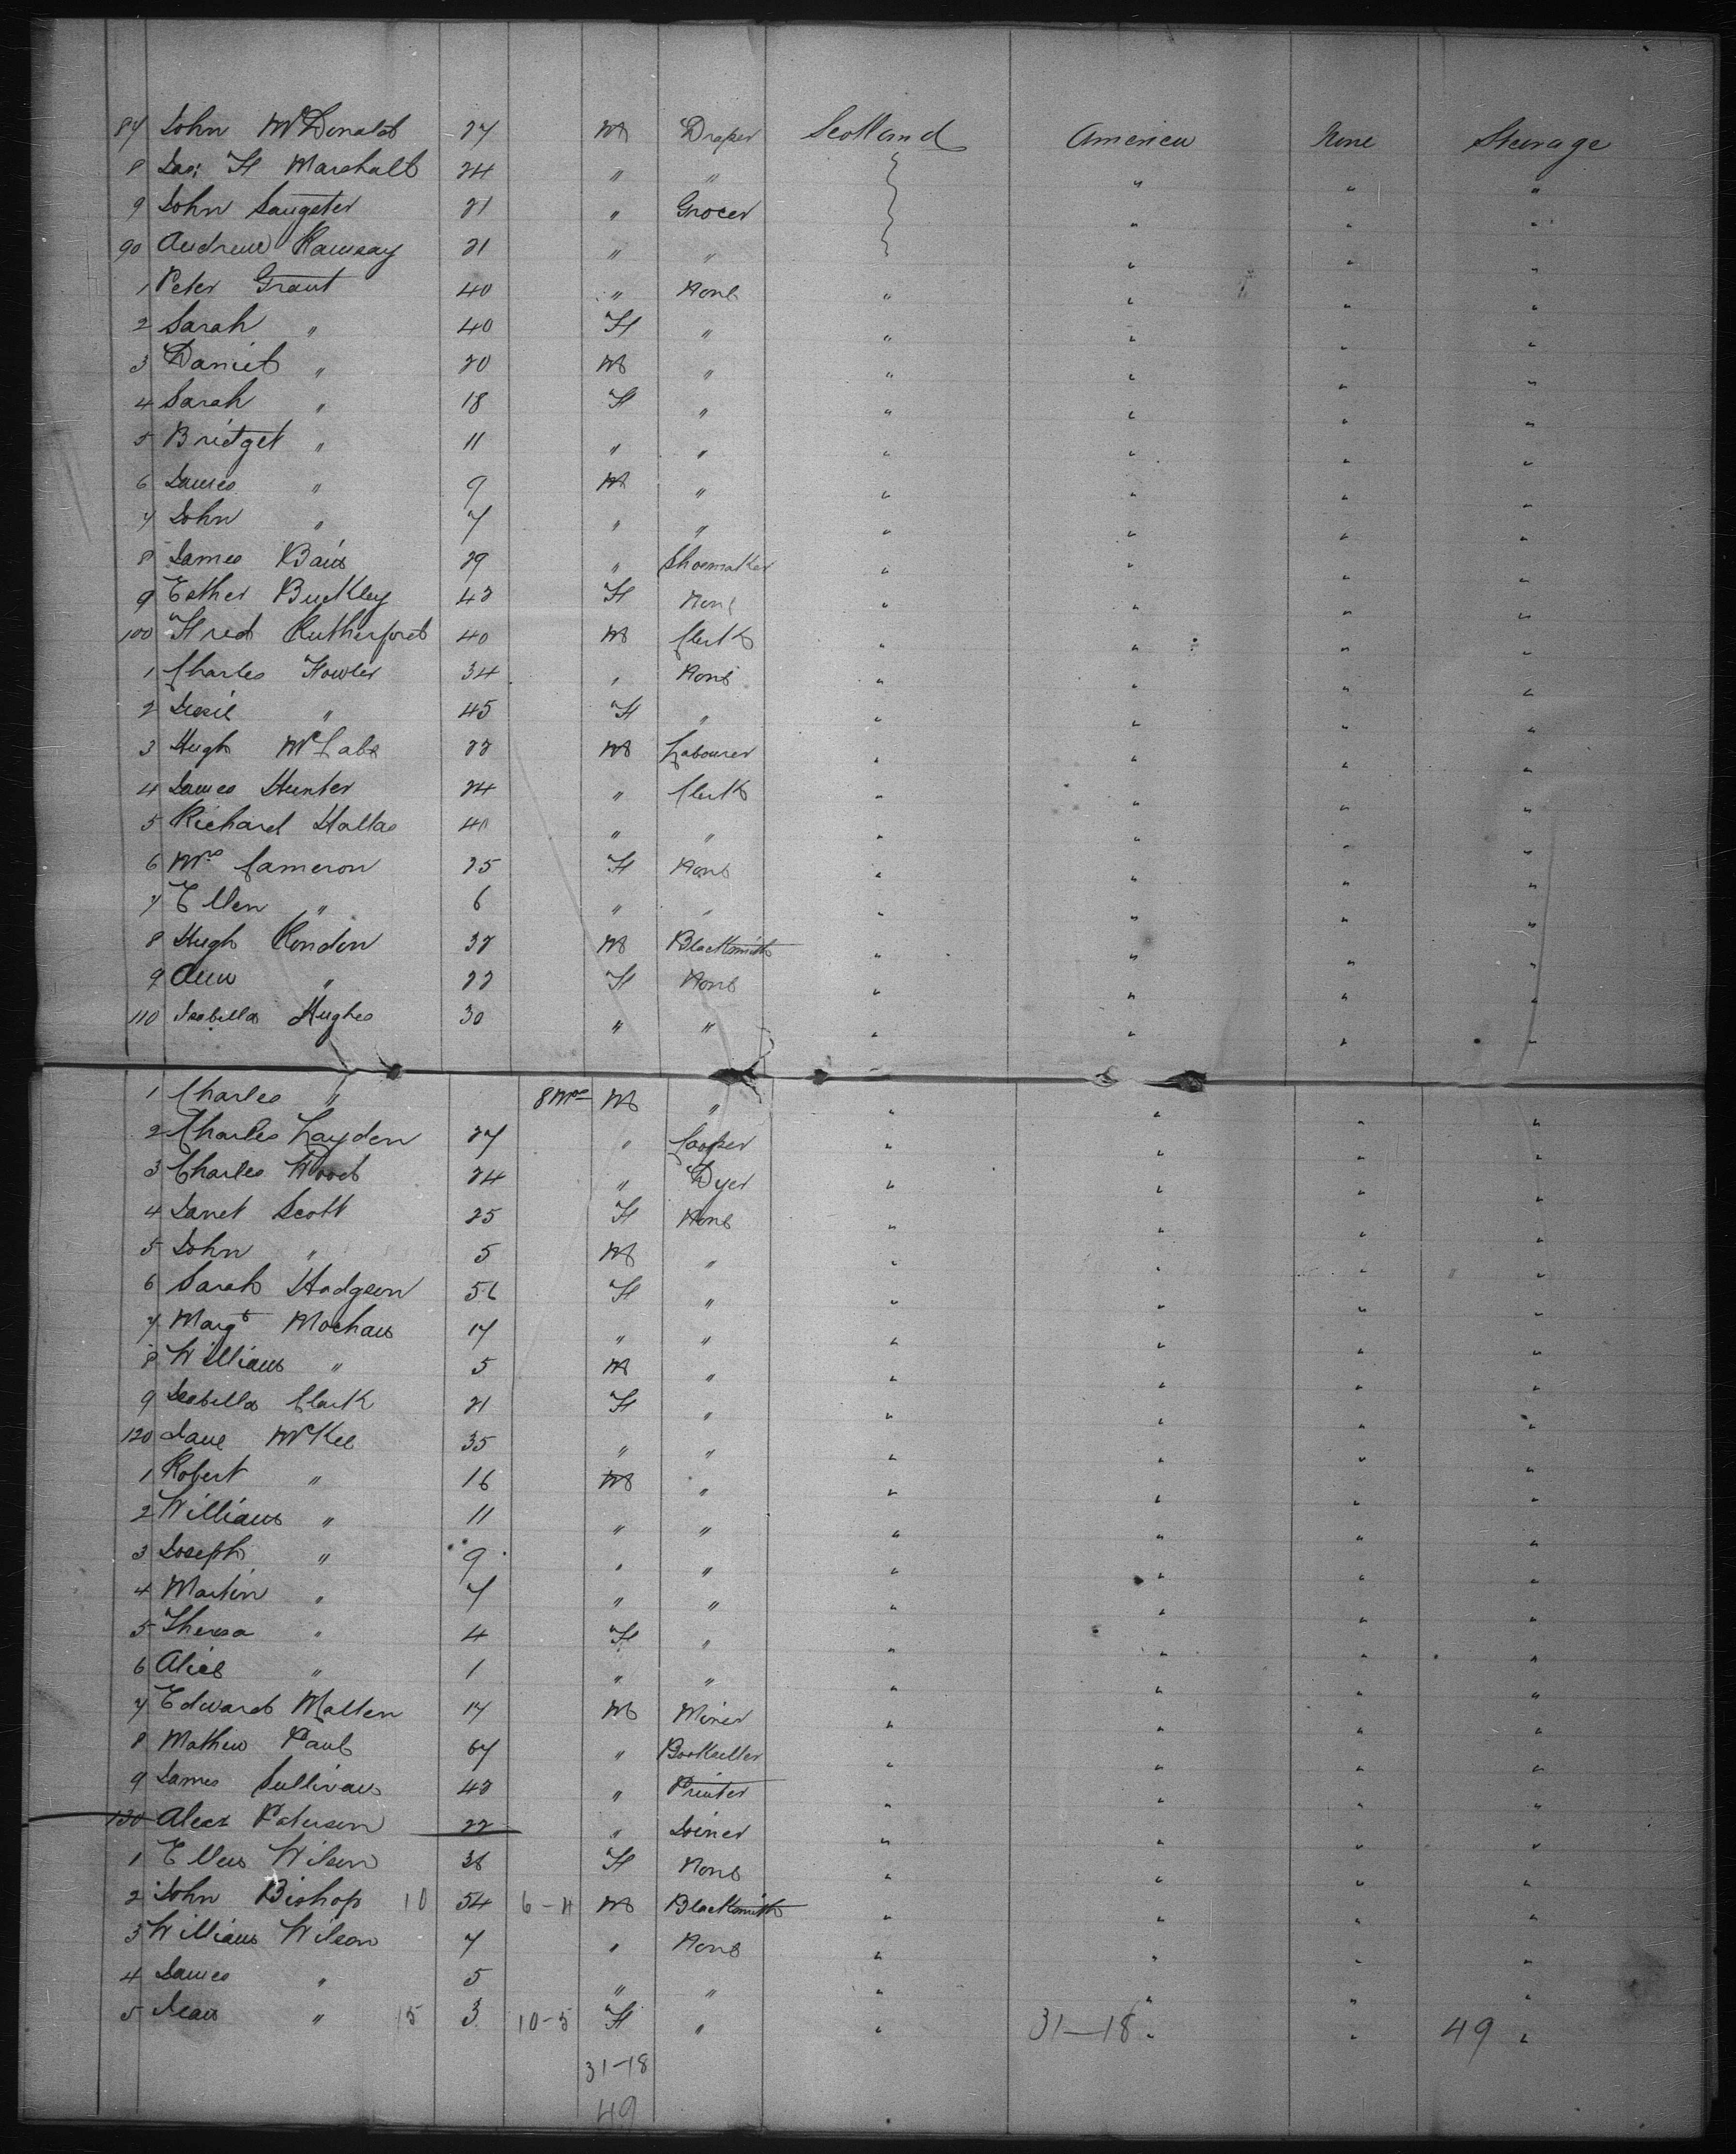 87 John McDonald 27 M Draper Scotland America None Steerage
8 Jas: H Marshall 24 " " " " "
9 John Sangster 21 " Grocer " " "
90 Andrew Ramsay 21 " " " " "
1 Peter Grant 40 " None " " " "
2 Sarah " 40 F " " " " "
3 Daniel " 20 M " " " " "
4 Sarah " 18 F " " " " "
5 Bridget " 11 " " " " " "
6 James " 9 M " " " " "
7 John " 7 " " " " " "
8 James Bain 29 " Shoemaker " " " "
9 Esther Buckley 42 F None " " " "
100 Fred Rutherford 40 M Clerk " " " "
1 Charles Fowler 34 " None " " " "
2 " 45 F " " " " "
3 Hugh 22 M Labourer " " " "
4 James Hunter 24 " Clerk " " " "
5 Richard Hallas " " " " " "
6 Mrs Cameron 25 F None " " " "
7 Ellen " 6 " " " " " "
8 Hugh Rendon 32 M Blacksmith " " " "
9 Ann " 22 F None " " " "
110 Isabella Hughes 30 " " " " " "
1 Charles " 8 Mos M " " " " "
2 Charles Layden 27 " Cooper " " " "
3 Charles Wood 24 " Dyer " " " "
4 Janet Scott 25 F None " " " "
5 John " 5 M " " " " "
6 Sarah Hodgson 56 F " " " " "
7 Margt Mochan 17 " " " " " "
8 William " 5 M " " " " "
9 Isabella Clark 21 F " " " " "
120 Jane McKee 35 " " " " " "
1 Robert " 16 M " " " " "
2 William " 11 " " " " " "
3 Joseph " 9 " " " " " "
4 Martin " 7 " " " " " "
5 Theresa " 4 F " " " " "
6 Alice " 1 " " " " " "
7 Edward Mallen 17 M Miner " " " "
8 Mathew Paul 67 " Bookseller " " " "
9 James Sullivan 42 " Printer " " " "
130 Alexr Paterson 22 " Joiner " " " "
1 Ellen Wilson 36 F None " " " "
2 John Bishop 10 54 6-4 M Blacksmith " " " "
3 William Wilson 7 " None " " " "
4 James " 5 " " " " " "
5 Jean " 15 3 10-5 F " " 31-18 " " 49 "
31-18
49